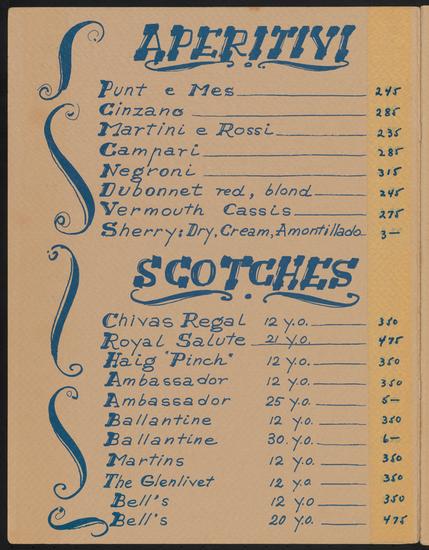 APERITIVI
Punt e Mes 245
Cinzano 285
Martini e Rossi 235
Campari 285
Negroni 315
Dubonnet red, blond 245
Vermouth Cassis 275
Sherry: Dry, Cream, Amontillado 3—
SCOTCHES
Chivas Regal 12 y.o. 350
Royal Salute 21 y.o. 475
Haig "Pinch" 12 y.o. 350
Ambassador 12 y.o. 350
Ambassador 25 y.o. 5—
Ballantine 12 y.o. 350
Ballantine 30. y.o. 6—
Martins 12 y.o. 350
The Glenlivet 12 y.o 350
Bell's 12 y.o 350
Bell's 20 y.o. 475